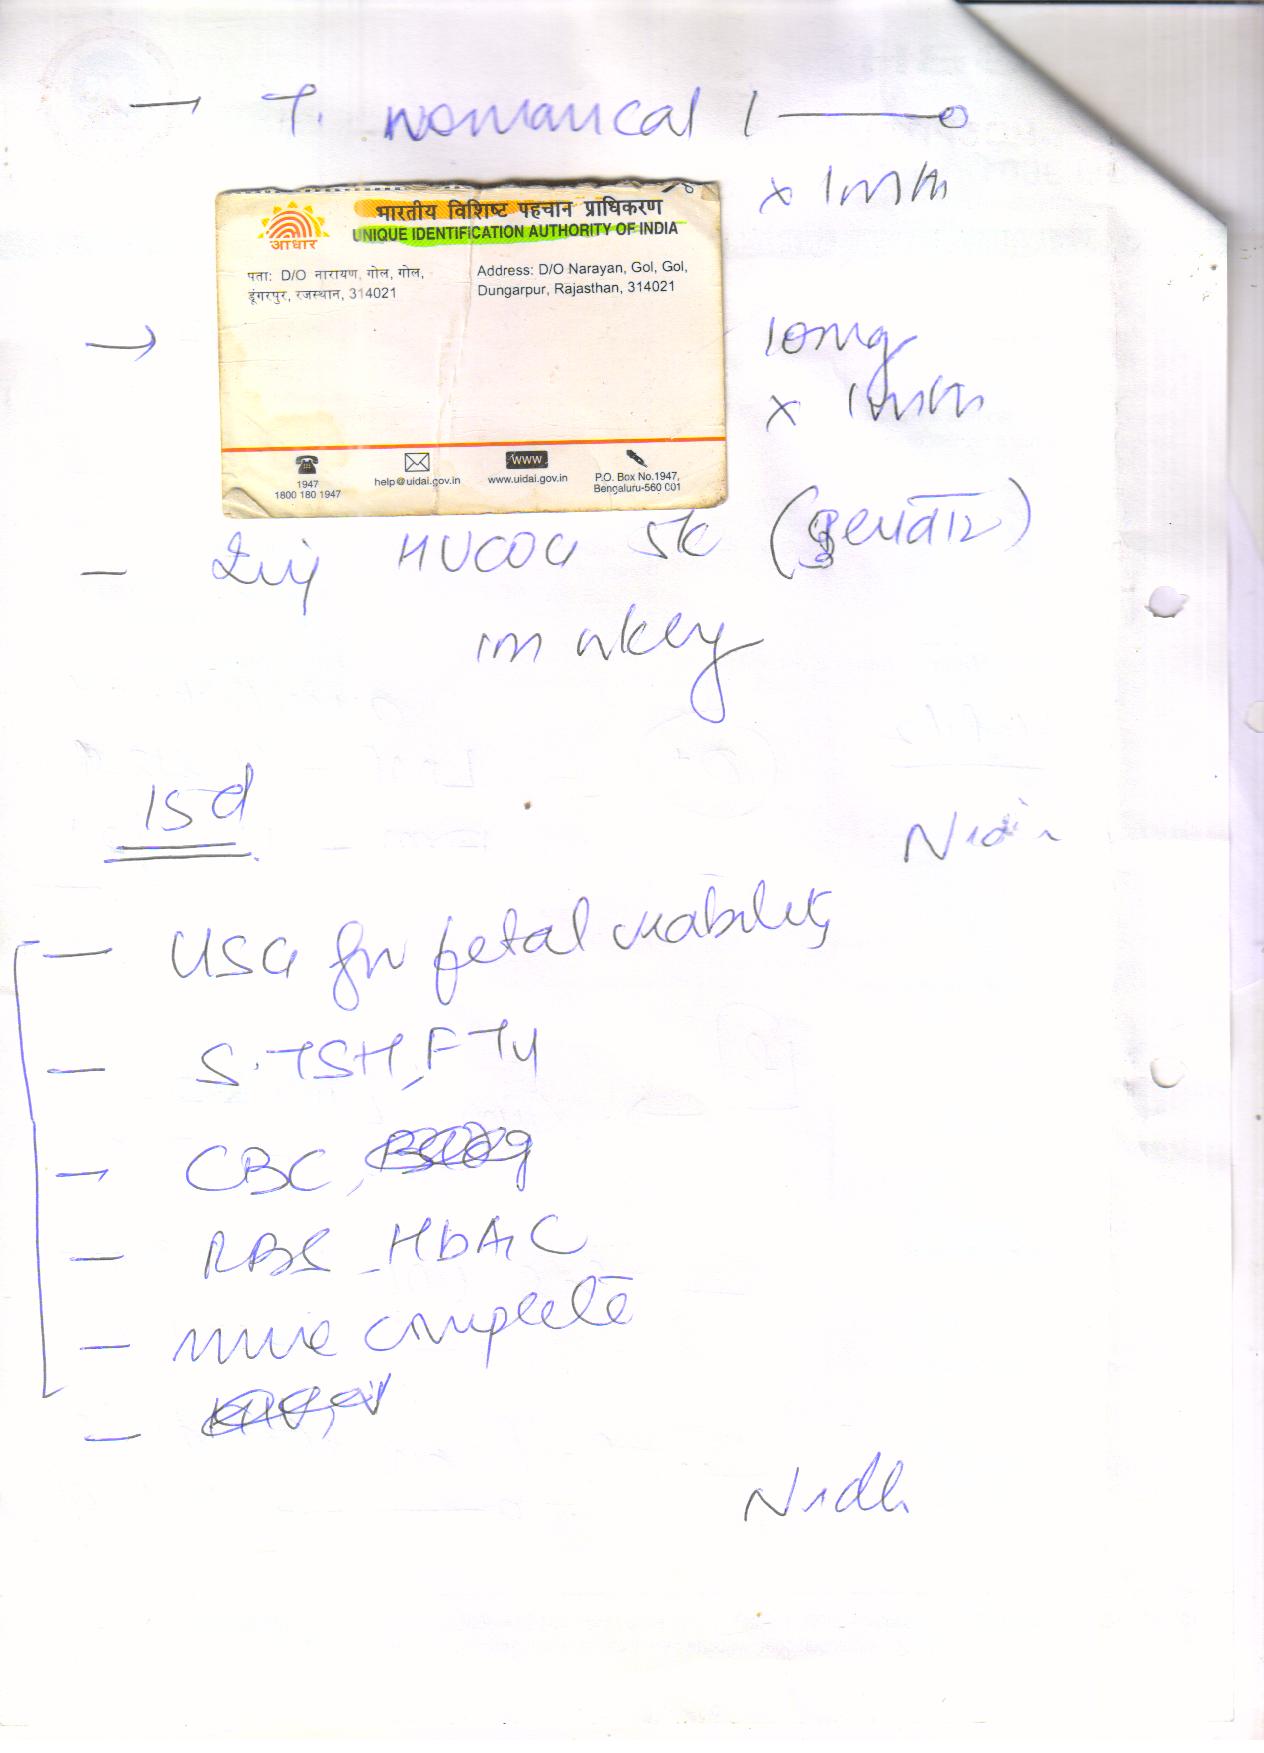 → T. nomarical 1 ——o
x 1mth
आधार
भारतीय विशिष्ट पहचान प्राधिकरण
UNIQUE IDENTIFICATION AUTHORITY OF INDIA
पता: D/O नारायण, गोल, गोल,
डूंगरपुर, राजस्थान, 314021
Address: D/O Narayan, Gol, Gol,
Dungarpur, Rajasthan, 314021
→ 10mg
x 1mth
1947
1800 180 1947
help@uidai.gov.in
WWW
www.uidai.gov.in
P.O. Box No.1947,
Bengaluru-560 001
— Inj HUCOG 5K
im wkly
— USG for fetal viability
— S.TSH, FT4
— CBC,
— RBS HbA1C
— urine complete
Nidh